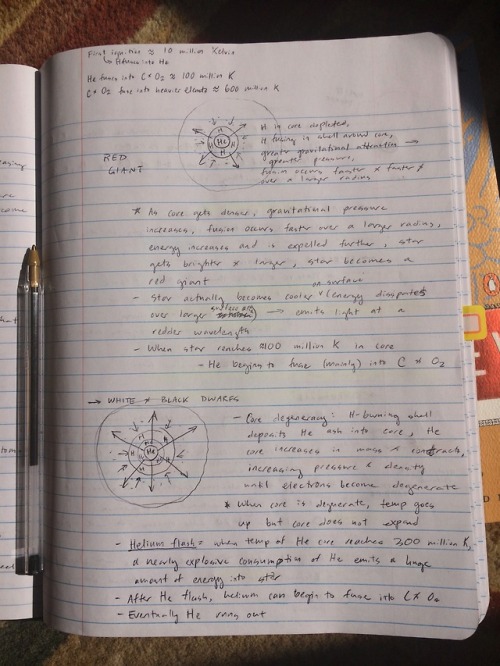 First ignition ≈ 10 million Kelvin
↳ H fuses into He
He fuses into C & O₂ ≈ 100 million K
C & O₂ fuse into heavier elements ≈ 600 million K
RED
GIANT
H
H
He
H
H
H in core depleted,
H fusing in shell around core,
greater gravitational attraction →
greater pressure,
fusion occurs faster & faster &
over a larger radius
* As core gets denser, gravitational pressure
increases, fusion occurs faster over a larger radius,
energy increases and is expelled further, star
gets brighter & larger, star becomes a
red giant
- Star actually becomes cooler on surface (energy dissipates
over larger surface area) → emits light at a
redder wavelength
- When star reaches ≈100 million K in core
- He begins to fuse (mainly) into C & O₂
→ WHITE & BLACK DWARFS
H
H
He
H
H
- Core degeneracy: H-burning shell
deposits He ash into core, the
core increases in mass & contracts,
increasing pressure & density
until electrons become degenerate
* When core is degenerate, temp goes
up but core does not expand
- Helium flash = when temp of He core reaches million K,
a nearly explosive consumption of He emits a huge
amount of energy into star
- After He flash, helium can begin to fuse into C & O₂
- Eventually He runs out